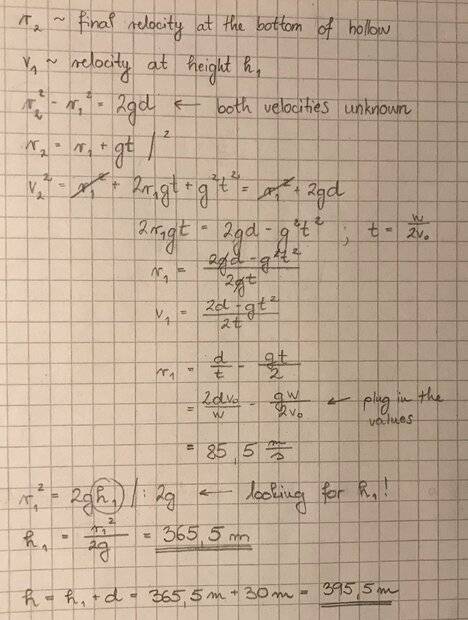 v₂ ~ final velocity at the bottom of hollow
v₁ ~ velocity at height h₁
v₂² - v₁² = 2gd ← both velocities unknown
v₂ = v₁ + gt /²
v₂² = v₁² + 2v₁gt + g²t² = v₁² + 2gd
2v₁gt = 2gd - g²t² ; t = w/2v₀
v₁ = (2gd - g²t²)/2gt
v₁ = (2d - gt²)/2t
v₁ = d/t - gt/2
= 2dv₀/w - gw/2v₀ ← plug in the values
= 85,5 m/s
v₁² = 2gh₁ / : 2g ← looking for h₁!
h₁ = v₁²/2g = 365,5 m
h = h₁ + d = 365,5 m + 30 m = 395,5 m